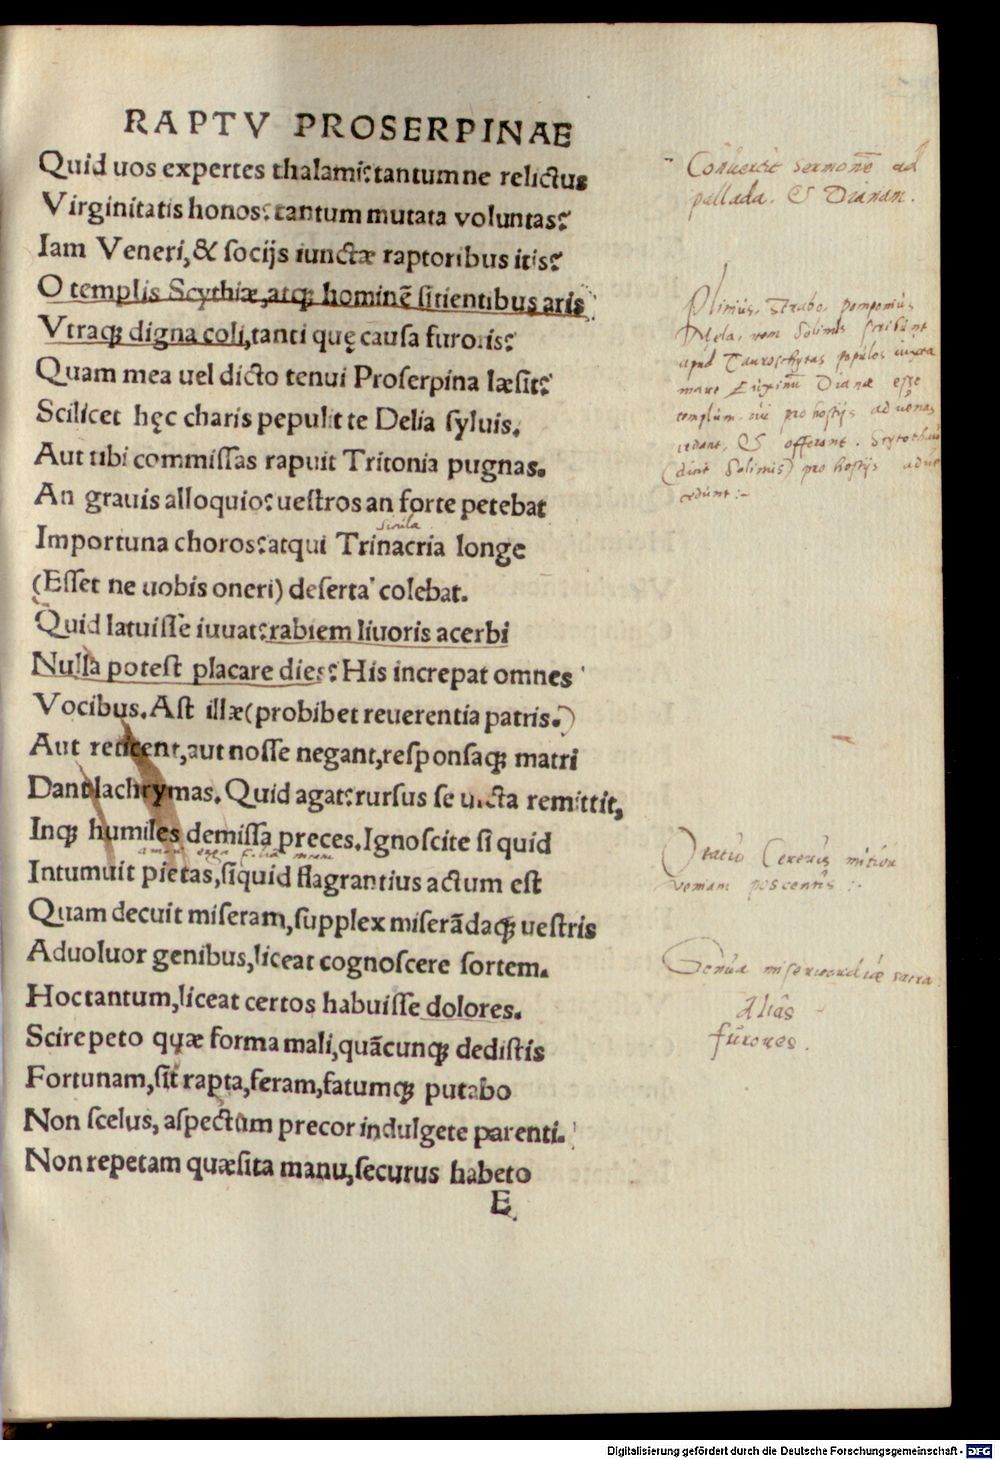 RAPTV PROSERPINAE
Quid uos expertes thalami؟tantumne relictus
Virginitatis honos؟tantum mutata voluntas؟
Iam Veneri,& socijs iunctæ raptoribus itis؟
O templis Scythiæ,atqꝫ hominẽ sitientibus aris
Vtraqꝫ digna coli,tanti quę causa furoris؟
Quam mea uel dicto tenui Proserpina læsit؟
Scilicet hęc charis pepulit te Delia syluis.
Aut tibi commissas rapuit Tritonia pugnas.
An grauis alloquio؟uestros an forte petebat
Importuna choros؟atqui Trinacria longe
(Esset ne uobis oneri) deserta colebat.
Quid latuisse iuuat؟rabiem liuoris acerbi
Nulla potest placare dies؟His increpat omnes
Vocibus.Ast illæ(probibet reuerentia patris.)
Aut reticent,aut nosse negant,responsaqꝫ matri
Dant lachrymas.Quid agat؟rursus se uicta remittit,
Inqꝫ humiles demissa preces.Ignoscite si quid
Intumuit pietas,siquid flagrantius actum est
Quam decuit miseram,supplex miserãdaqꝫ uestris
Aduoluor genibus,liceat cognoscere sortem.
Hoc tantum,liceat certos habuisse dolores.
Scire peto quæ forma mali,quãcunqꝫ dedistis
Fortunam,sit rapta,feram,fatumqꝫ putabo
Non scelus, aspectum precor indulgete parenti.
Non repetam quæsita manu,securus habeto
E
Conuertit sermonẽ ad
pallada. & Dianam.
Plinius, Strabo, pomponius
Mela, nem Solinus scribunt
apud Tauroschytas populos iuxta
mare Euxinũ Dianæ esse
templum
pro hostijs aduenas
& offerant.
Solinus) pro hostijs
Oratio Cereris mitior
veniam poscentis :.
Genua misericordiæ sacra
Aliâs
furores.
Digitalisierung gefördert durch die Deutsche Forschungsgemeinschaft - DFG